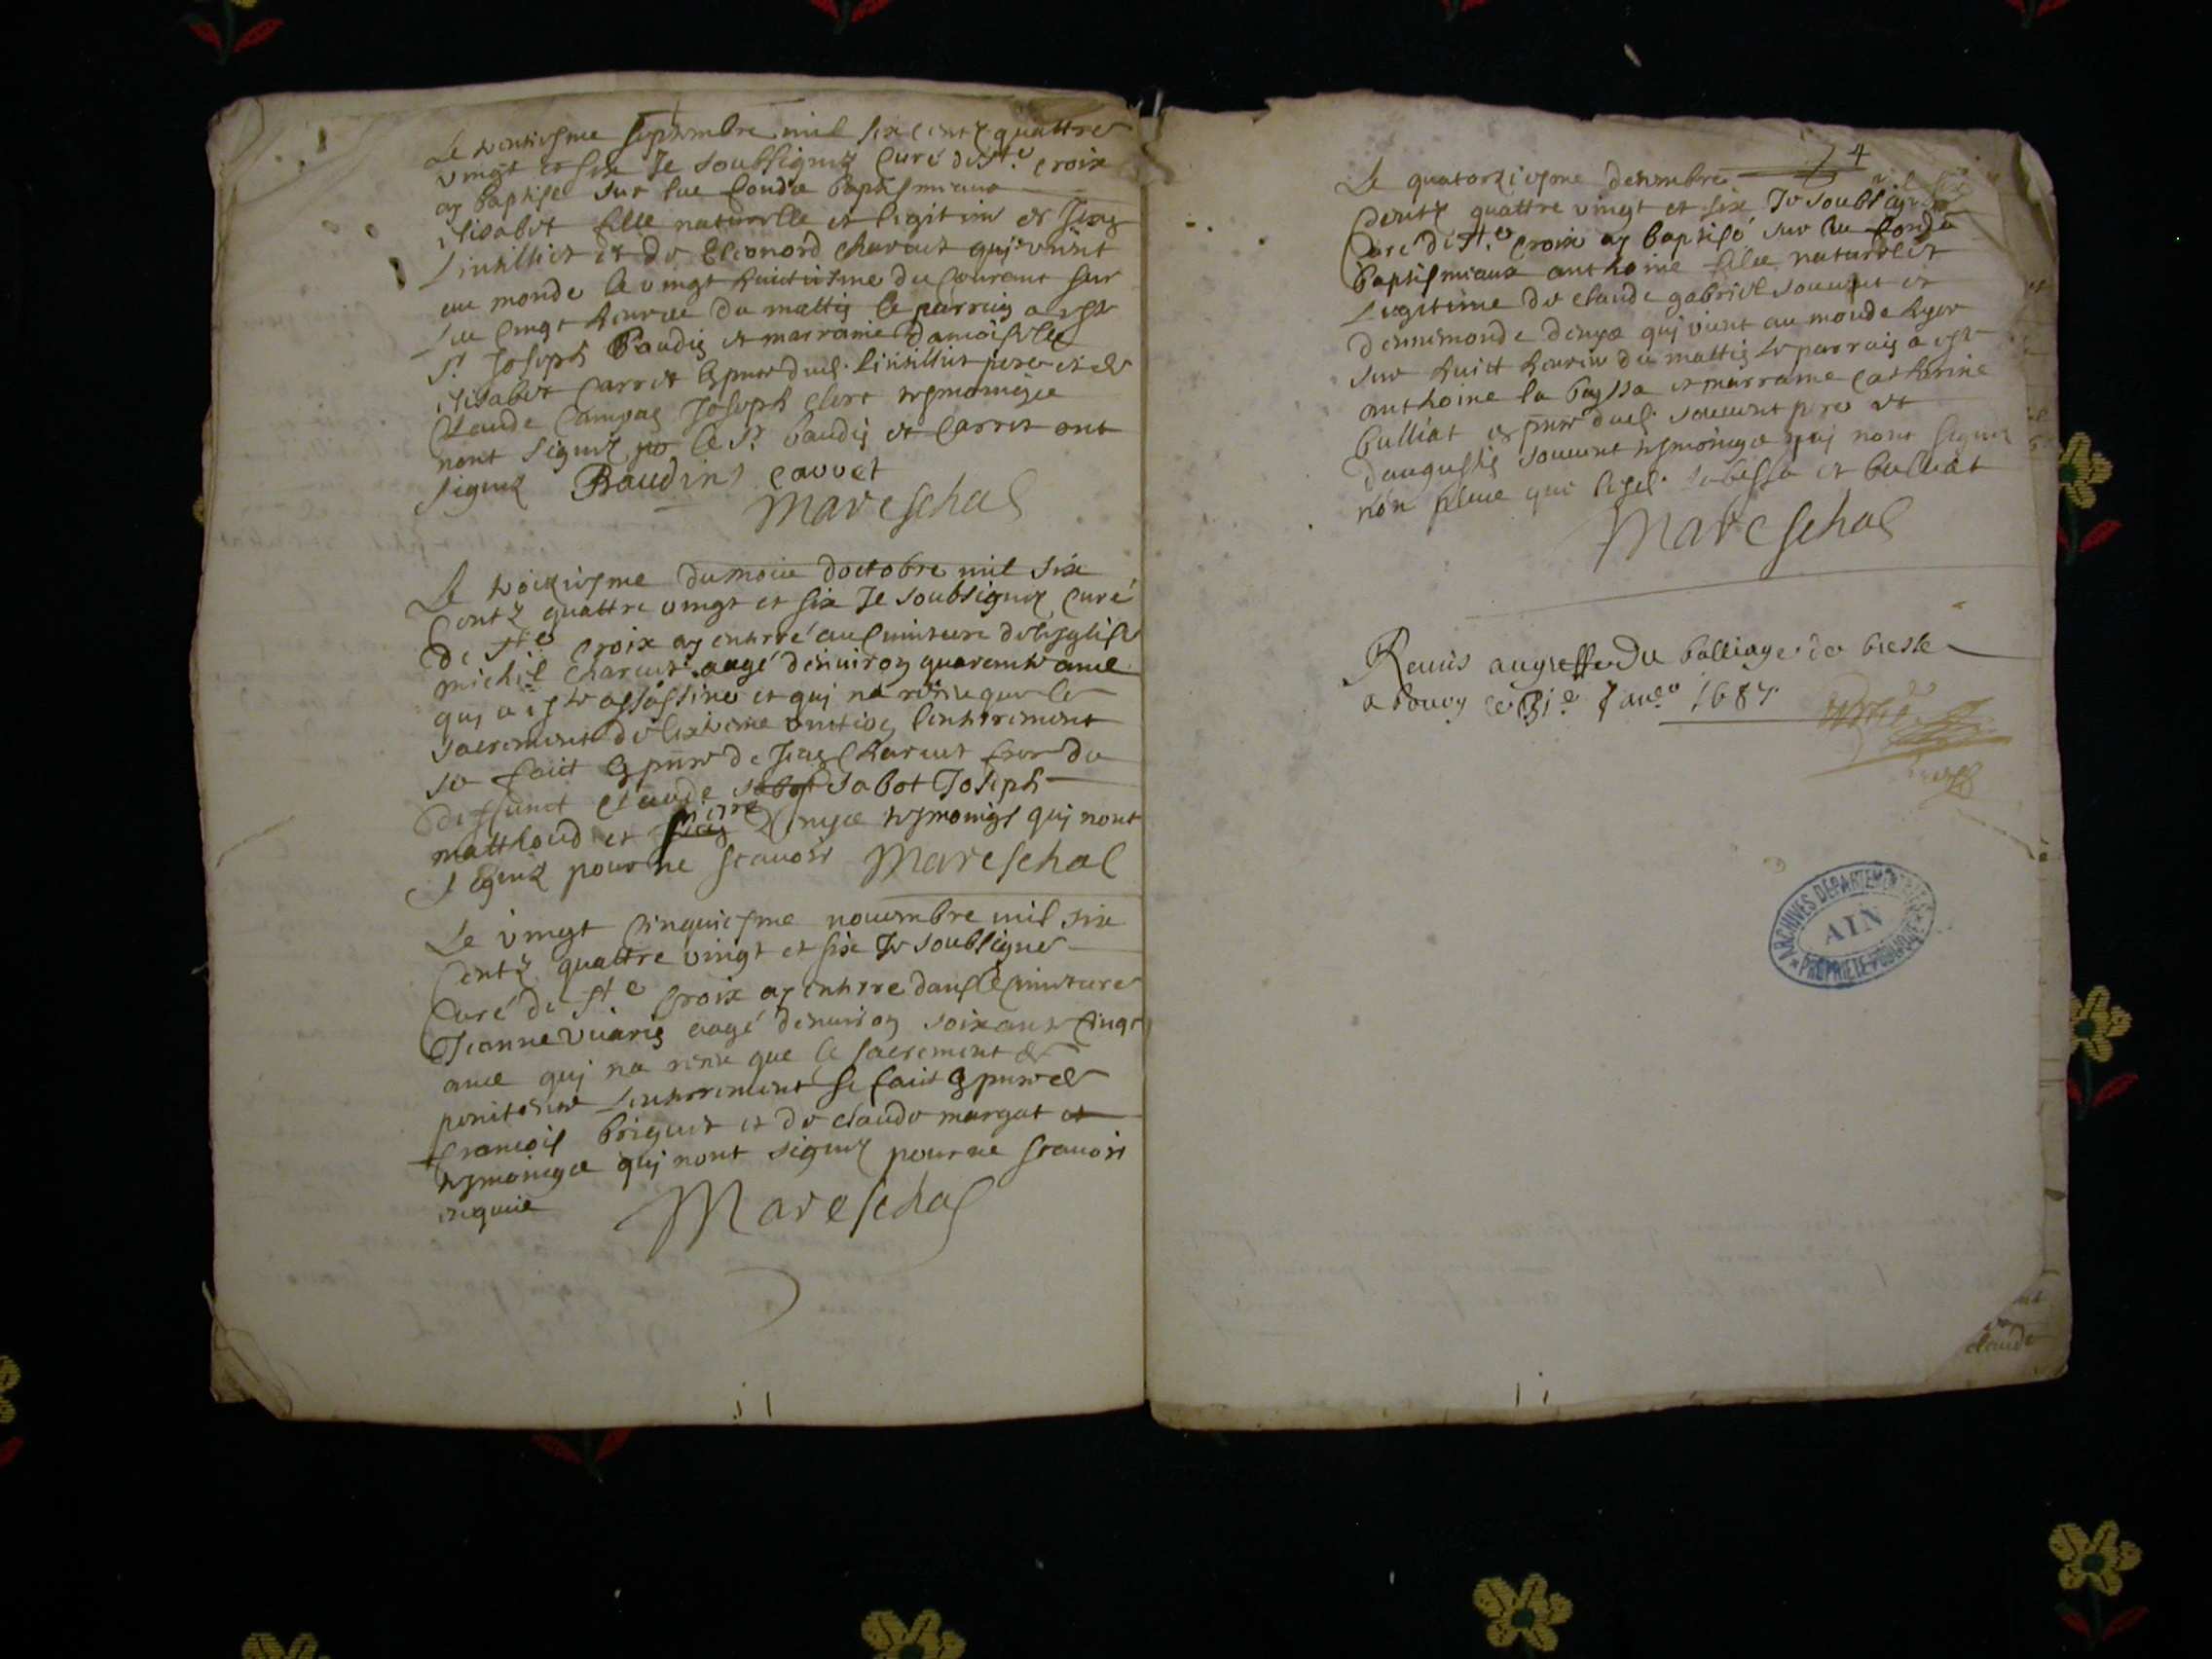 Le trentiesme septembre mil six centz quattre
vingt et six Je soubsignez Curé de Ste croix
ay baptise sur les fondz baptismaux
elisabet fille naturelle et legitime de Jean
et de Eleonord charvet quj vient
au monde le vingt huictiesme du courant sur
les cinq heures du mattin le parrain a este
Sr Joseph Baudin et marraine damoiselle
elisabet Carret en pnce dud. pere et de
Claude Joseph clert tesmoings
nont signez le Sr baudin et Carret ont
signez Baudin Carret
Mareschal
Le troiziesme du mois doctobre mil six
Centz quattre vingt et six Je soubsignez Curé
de Ste Croix ay enterré au cimitiere de leglise
michel charvet aagé denviron quarente ans
quj a este assassiné et quj na receu que le
sacrement de lextreme onction lenterrement
se faict en pnce de Jean Charvet frere du
deffunct claude sabot sabot Joseph
matthoud et pierre Denys tesmoings quj nont
signez pour ne scavoir Mareschal
Le vingt cinquiesme novembre mil six
Centz quattre vingt et six Je soubsigne
Curé de Ste Croix ay enterre dans le cimitiere
Jeanne vuarin aagé denviron soixante cinq
ans quj na receu que le sacrement de
penitence lenterrement se faict en pnce de
francois briguet et de claude margat et
tesmoings quj nont signez pour ne scavoir
requis
Mareschal
74
Le quatorziesme decembre mil six
Centz quattre vingt et six Je soubsignez
Curé de Ste Croix ay baptisé sur les fondz
baptismaux anthoine filz naturel et
legitime de claude gabriel jouvent et
denys quj vient au monde hyer
sur huict heures du mattin le parrain a este
anthoine la bayssa et marraine catherine
bulliat en pnce dud. jouvent pere et
daugustin jouvent tesmoings quj nont signez
non plus que lesd. labessa et bulliat
Mareschal
Remis au greffe du balliage de bresse
a bourg le 31e Janer 1687
ARCHIVES DEPARTEMENTALES
AIN
PROPRIETE PUBLIQUE
claude